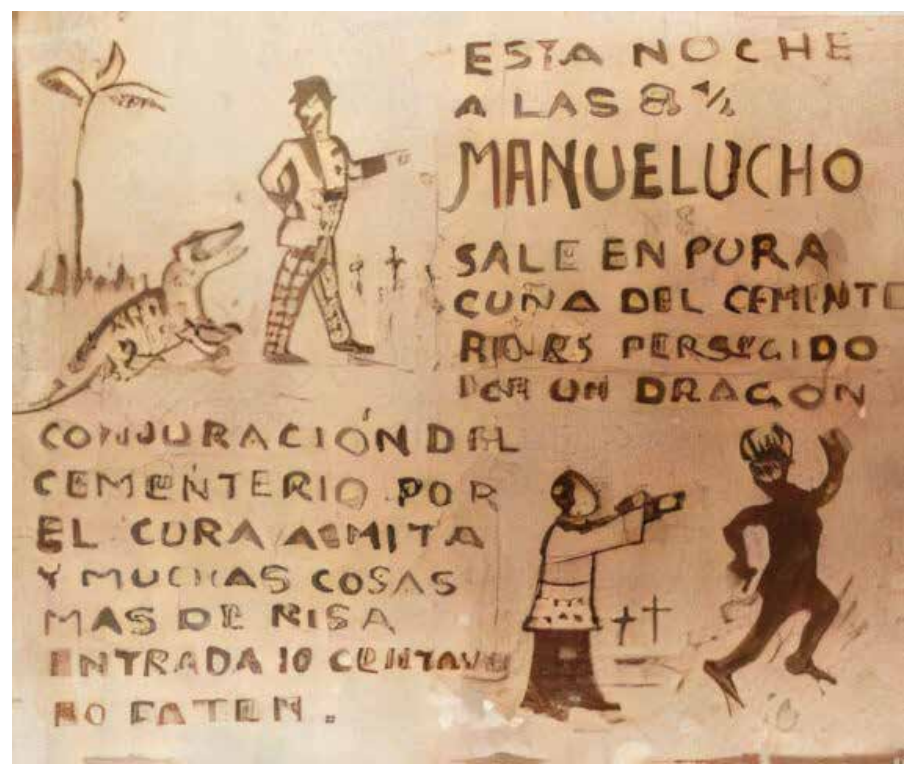 ESTA NOCHE
A LAS 8 ½
MANUELUCHO
SALE EN PURA
CUÑA DEL CEMENTE
RIO ES PERSEGIDO
POR UN DRAGON
CONJURACIÓN DEL
CEMENTERIO POR
EL CURA ASMITA
Y MUCHAS COSAS
MAS DE RISA
ENTRADA 10 CENTAVO
NO FATEN.